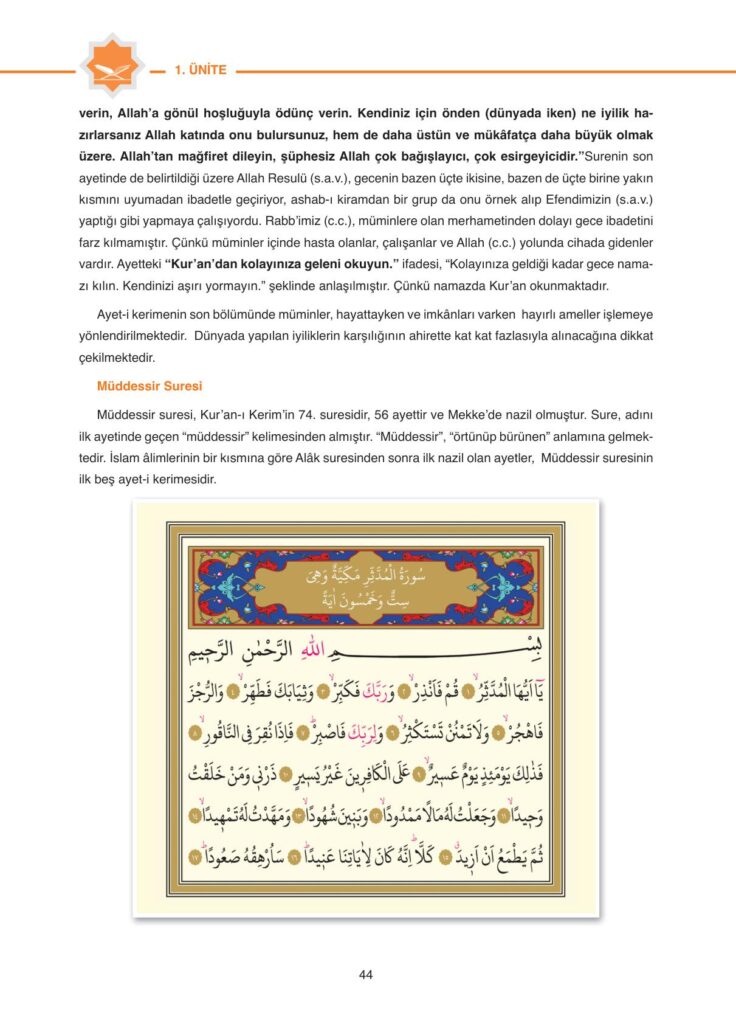 1. ÜNİTE
verin, Allah’a gönül hoşluğuyla ödünç verin. Kendiniz için önden (dünyada iken) ne iyilik ha-
zırlarsanız Allah katında onu bulursunuz, hem de daha üstün ve mükâfatça daha büyük olmak
üzere. Allah’tan mağfiret dileyin, şüphesiz Allah çok bağışlayıcı, çok esirgeyicidir.”Surenin son
ayetinde de belirtildiği üzere Allah Resulü (s.a.v.), gecenin bazen üçte ikisine, bazen de üçte birine yakın
kısmını uyumadan ibadetle geçiriyor, ashab-ı kiramdan bir grup da onu örnek alıp Efendimizin (s.a.v.)
yaptığı gibi yapmaya çalışıyordu. Rabb’imiz (c.c.), müminlere olan merhametinden dolayı gece ibadetini
farz kılmamıştır. Çünkü müminler içinde hasta olanlar, çalışanlar ve Allah (c.c.) yolunda cihada gidenler
vardır. Ayetteki “Kur’an’dan kolayınıza geleni okuyun.” ifadesi, “Kolayınıza geldiği kadar gece nama-
zı kılın. Kendinizi aşırı yormayın.” şeklinde anlaşılmıştır. Çünkü namazda Kur’an okunmaktadır.
Ayet-i kerimenin son bölümünde müminler, hayattayken ve imkânları varken hayırlı ameller işlemeye
yönlendirilmektedir. Dünyada yapılan iyiliklerin karşılığının ahirette kat kat fazlasıyla alınacağına dikkat
çekilmektedir.
Müddessir Suresi
Müddessir suresi, Kur’an-ı Kerim’in 74. suresidir, 56 ayettir ve Mekke’de nazil olmuştur. Sure, adını
ilk ayetinde geçen “müddessir” kelimesinden almıştır. “Müddessir”, “örtünüp bürünen” anlamına gelmek-
tedir. İslam âlimlerinin bir kısmına göre Alâk suresinden sonra ilk nazil olan ayetler, Müddessir suresinin
ilk beş ayet-i kerimesidir.
سُورَةُ الْمُدَّثِّرِ مَكِّيَّةٌ وَهِيَ
سِتٌّ وَخَمْسُونَ اٰيَةً
بِسْمِ اللّٰهِ الرَّحْمٰنِ الرَّحٖيمِ
يَٓا اَيُّهَا الْمُدَّثِّرُۙ ١ قُمْ فَاَنْذِرْۙ ٢ وَرَبَّكَ فَكَبِّرْۙ ٣ وَثِيَابَكَ فَطَهِّرْۙ ٤ وَالرُّجْزَ
فَاهْجُرْۙ ٥ وَلَا تَمْنُنْ تَسْتَكْثِرُۙ ٦ وَلِرَبِّكَ فَاصْبِرْؕ ٧ فَاِذَا نُقِرَ فِى النَّاقُورِۙ ٨
فَذٰلِكَ يَوْمَئِذٍ يَوْمٌ عَسٖيرٌۙ ٩ عَلَى الْكَافِرٖينَ غَيْرُ يَسٖيرٍ ١٠ ذَرْنٖى وَمَنْ خَلَقْتُ
وَحٖيدًاۙ ١١ وَجَعَلْتُ لَهُ مَالًا مَمْدُودًاۙ ١٢ وَبَنٖينَ شُهُودًاۙ ١٣ وَمَهَّدْتُ لَهُ تَمْهٖيدًاۙ ١٤
ثُمَّ يَطْمَعُ اَنْ اَزٖيدَۗ ١٥ كَلَّاؕ اِنَّهُ كَانَ لِاٰيَاتِنَا عَنٖيدًاؕ ١٦ سَاُرْهِقُهُ صَعُودًاؕ ١٧
44